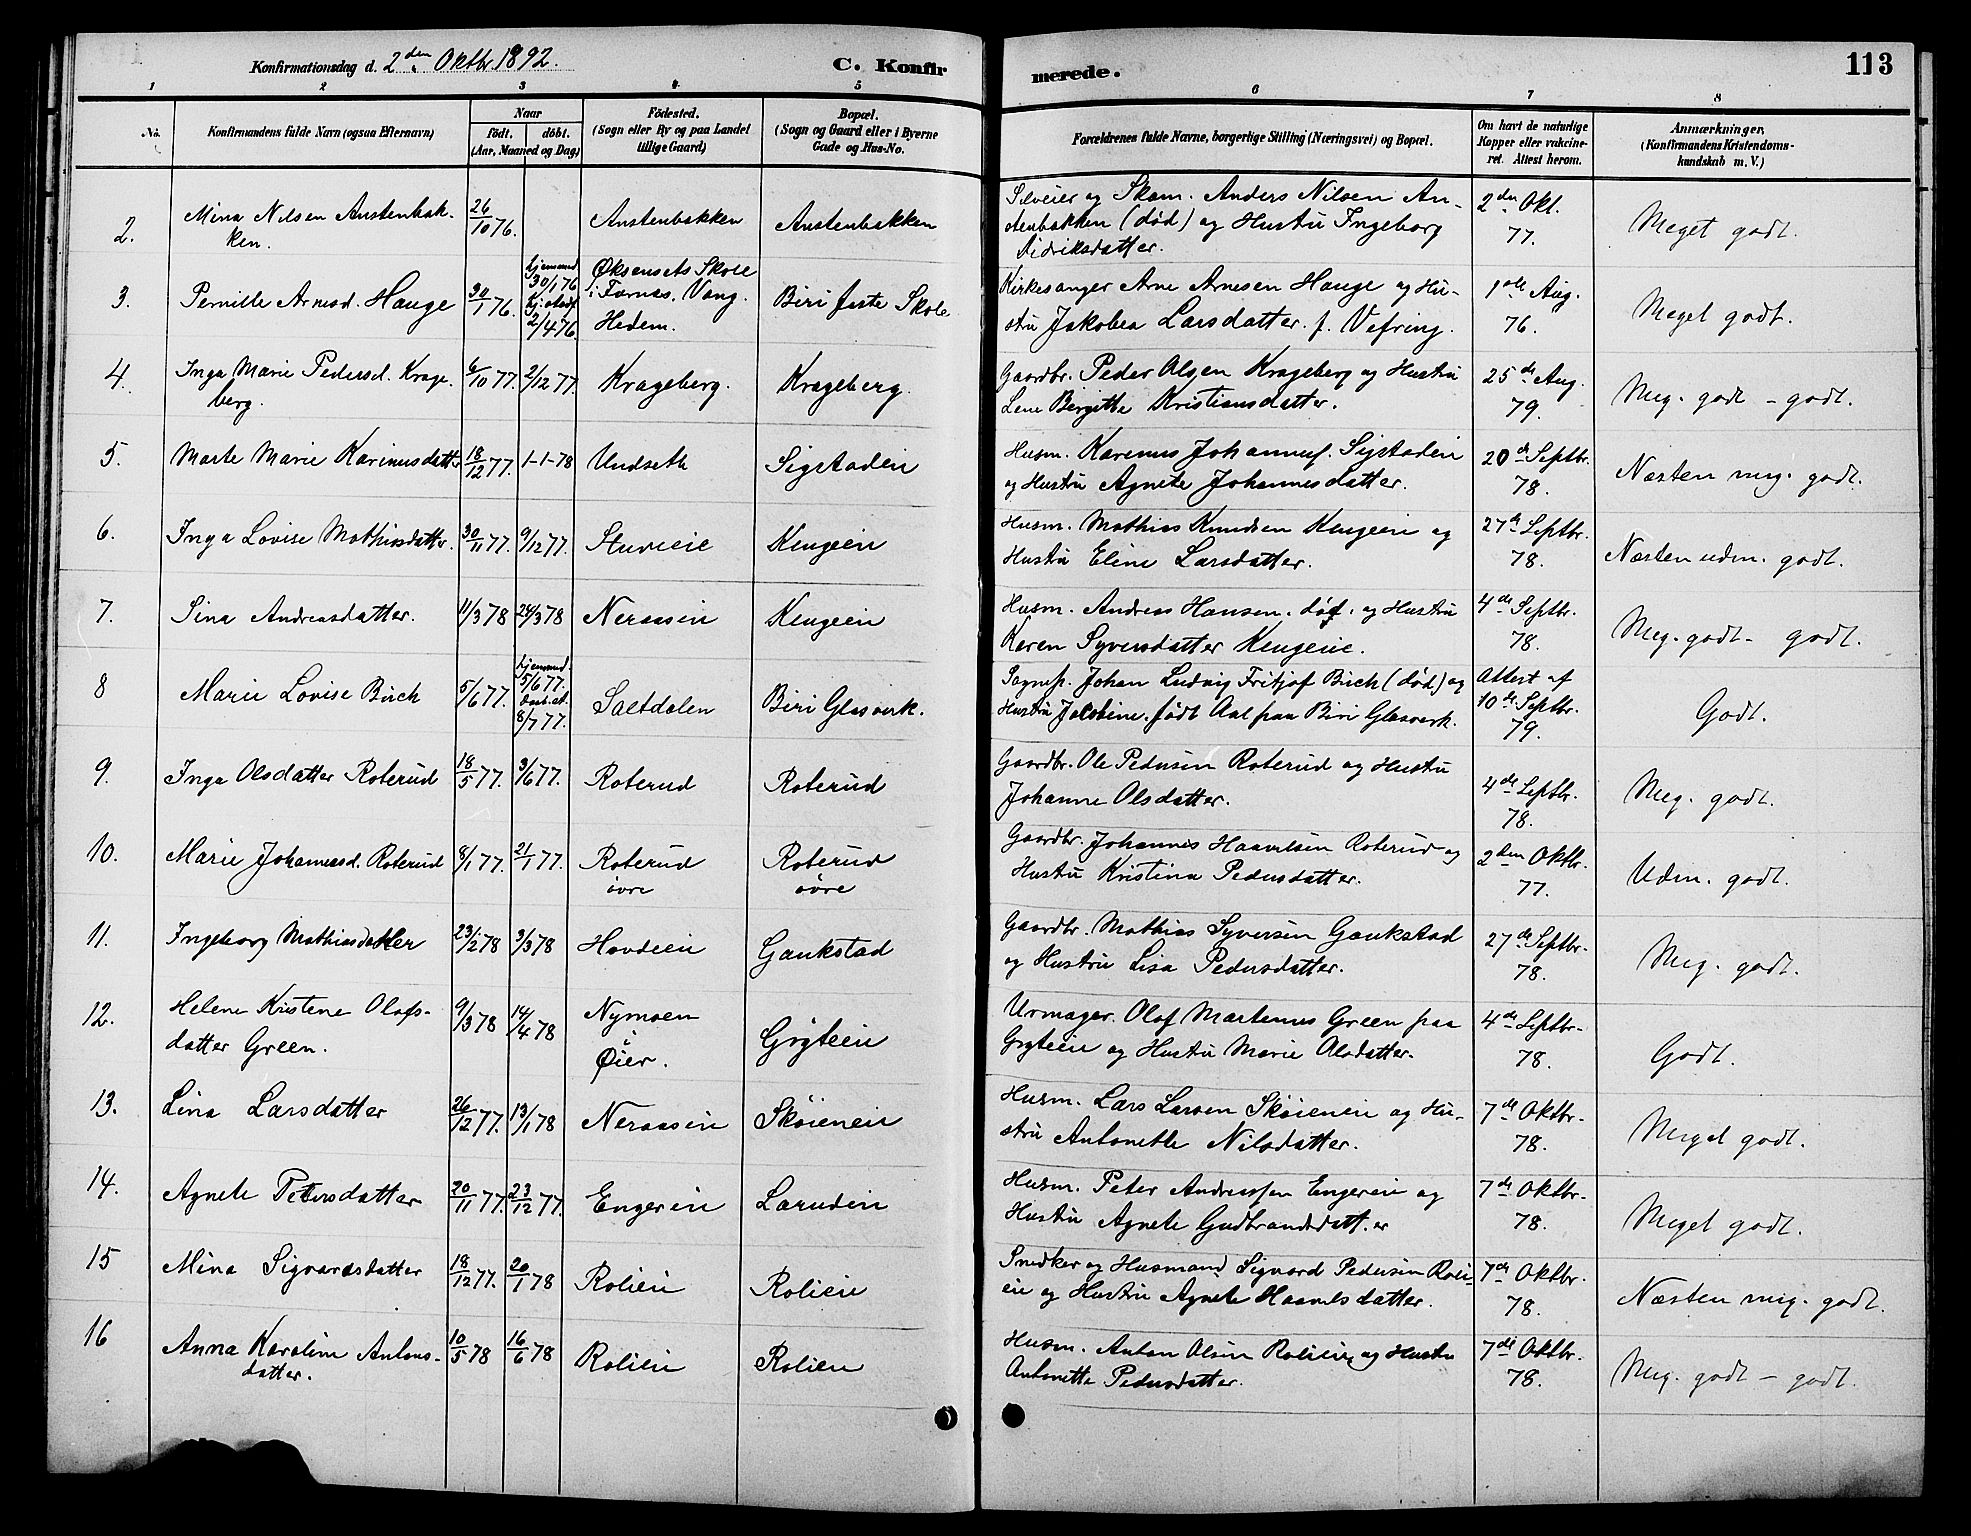 Konfirmationsdag d. 2den Oktbr. 1892.
C. Konfir
merede.
113
1 2 3 4 5 6 7 8
No.
Konfirmandens fulde Navn (ogsaa Efternavn)
Naar
födt. döbt.
(Aar, Maaned og Dag)
Födested.
(Sogn eller By og paa Landet
tillige Gaard)
Bopæl.
(Sogn og Gaard eller i Byerne
Gade og Hus-No.
Forældrenes fulde Navne, borgerlige Stilling (Næringsvei) og Bopæl.
Om havt de naturlige
Kopper eller vakcine-
ret. Attest herom.
Anmærkninger.
(Konfirmandens Kristendoms-
kundskab m. V.)
2. Mina Nilsen Austenbak-
ken.
26/10 76.
Austenbakken
Austenbakken
Selveier og Skom. Anders Nilsen Au-
stenbakken (död) og Hustru Ingeborg
Didriksdatter.
2den Okt.
77.
Meget godt.
3. Pernille Arnesd. Hauge
30/1 76.
hjemmed.
30/1 76
2/4 76.
Øksensets Skole
i Furnes. Vang.
Hedem.
Biri faste Skole
Kirkesanger Arne Arnesen Hauge og Hu-
stru Jakobea Larsdatter. f. Vefring.
1ste Aug.
76.
Meget godt.
4. Inga Marie Pedersd. Krage-
berg.
6/10 77. 2/12 77.
Krageberg.
Krageberg.
Gaardbr. Peder Olsen Krageberg og Hustru
Lene Birgitte Kristiansdatter.
25de Aug.
79.
Meg. godt - godt.
5. Marte Marie Karinusdatter
18/12 77. 1-1-78
Undseth
Sigstadeie
Husm. Karinus Johannes. Sigstadeie
og Hustru Agnete Johannesdatter.
20de Septbr.
78.
Næsten meg. godt.
6. Inga Lovise Mathiasdatter.
30/11 77. 9/12 77.
Stuveie
Kengeeie
Husm. Mathias Knudsen Kengeeie og
Hustru Eline Larsdatter.
27de Septbr.
78.
Næsten udm. godt.
7. Sina Andreasdatter.
11/3 78 24/3 78
Neraaseie
Kengeeie
Husm. Andreas Hansen. död. og Hustru
Karen Syversdatter Kengeeie.
4de Septbr.
78.
Meg. godt - godt.
8 Marie Lovise Birch
5/6 77.
hjemmed.
5/6 77.
8/7 77.
Saltdalen
Biri Glasverk.
Sognep. Johan Ludvig Fritjof Birch (död) og
Hustru Jakobine. født Aal paa Biri Glasverk.
Attest af
10de Septbr.
79.
Godt.
9. Inga Olsdatter Roterud
18/5 77. 3/6 77.
Roterud
Roterud
Gaardbr. Ole Pedersen Roterud og Hustru
Johanne Olsdatter.
4de Septbr.
78.
Meg. godt.
10. Marie Johannesd. Roterud
8/1 77. 21/1 77.
Roterud
övre
Roterud
övre
Gaardbr. Johannes Haavelsen Roterud og
Hustru Kristina Pedersdatter.
2den Oktbr.
77.
Udm. godt.
11. Ingeborg Mathiasdatter
23/2 78 3/3 78
Hovdeeie
Gaukstad
Gaardbr. Mathias Syversen Gaukstad
og Hustru Lisa Pedersdatter.
27de Septbr.
78.
Meg. godt.
12. Helene Kristine Olafs-
datter Green.
9/3 78 14/4 78
Nymoen
i
Øier.
Grÿteeie
Urmager. Olaf Martenus Green paa
Grÿteeie og Hustru Marie Olsdatter.
4de Septbr.
78.
Godt.
13. Lina Larsdatter
26/12 77. 13/1 78
Neraaseie
Sköieneie
Husm. Lars Larsen Sköieneie og Hu-
stru Antonette Nilsdatter.
7de Oktbr.
78.
Meget godt.
14. Agnete Petersdatter
20/11 77. 23/12 77.
Engereie
Larudeie
Husm. Peter Andreassen Engereie og
Hustru Agnete Gudbrandsdatter
7de Oktbr.
78.
Meget godt.
15 Mina Sigvardsdatter
18/12 77. 20/1 78
Rolieie
Rolieie
Snedker og Husmand Sigvard Pedersen Roli-
eie og Hustru Agnete Haavelsdatter.
7de Oktbr.
78.
Næsten meg. godt.
16 Anna Karoline Antons-
datter.
10/5 78 16/6 78
Rolieie
Rolieie
Husm. Anton Olsen Rolieie og Hustru
Antonette Pedersdatter.
7de Oktbr.
78.
Meg. godt - godt.